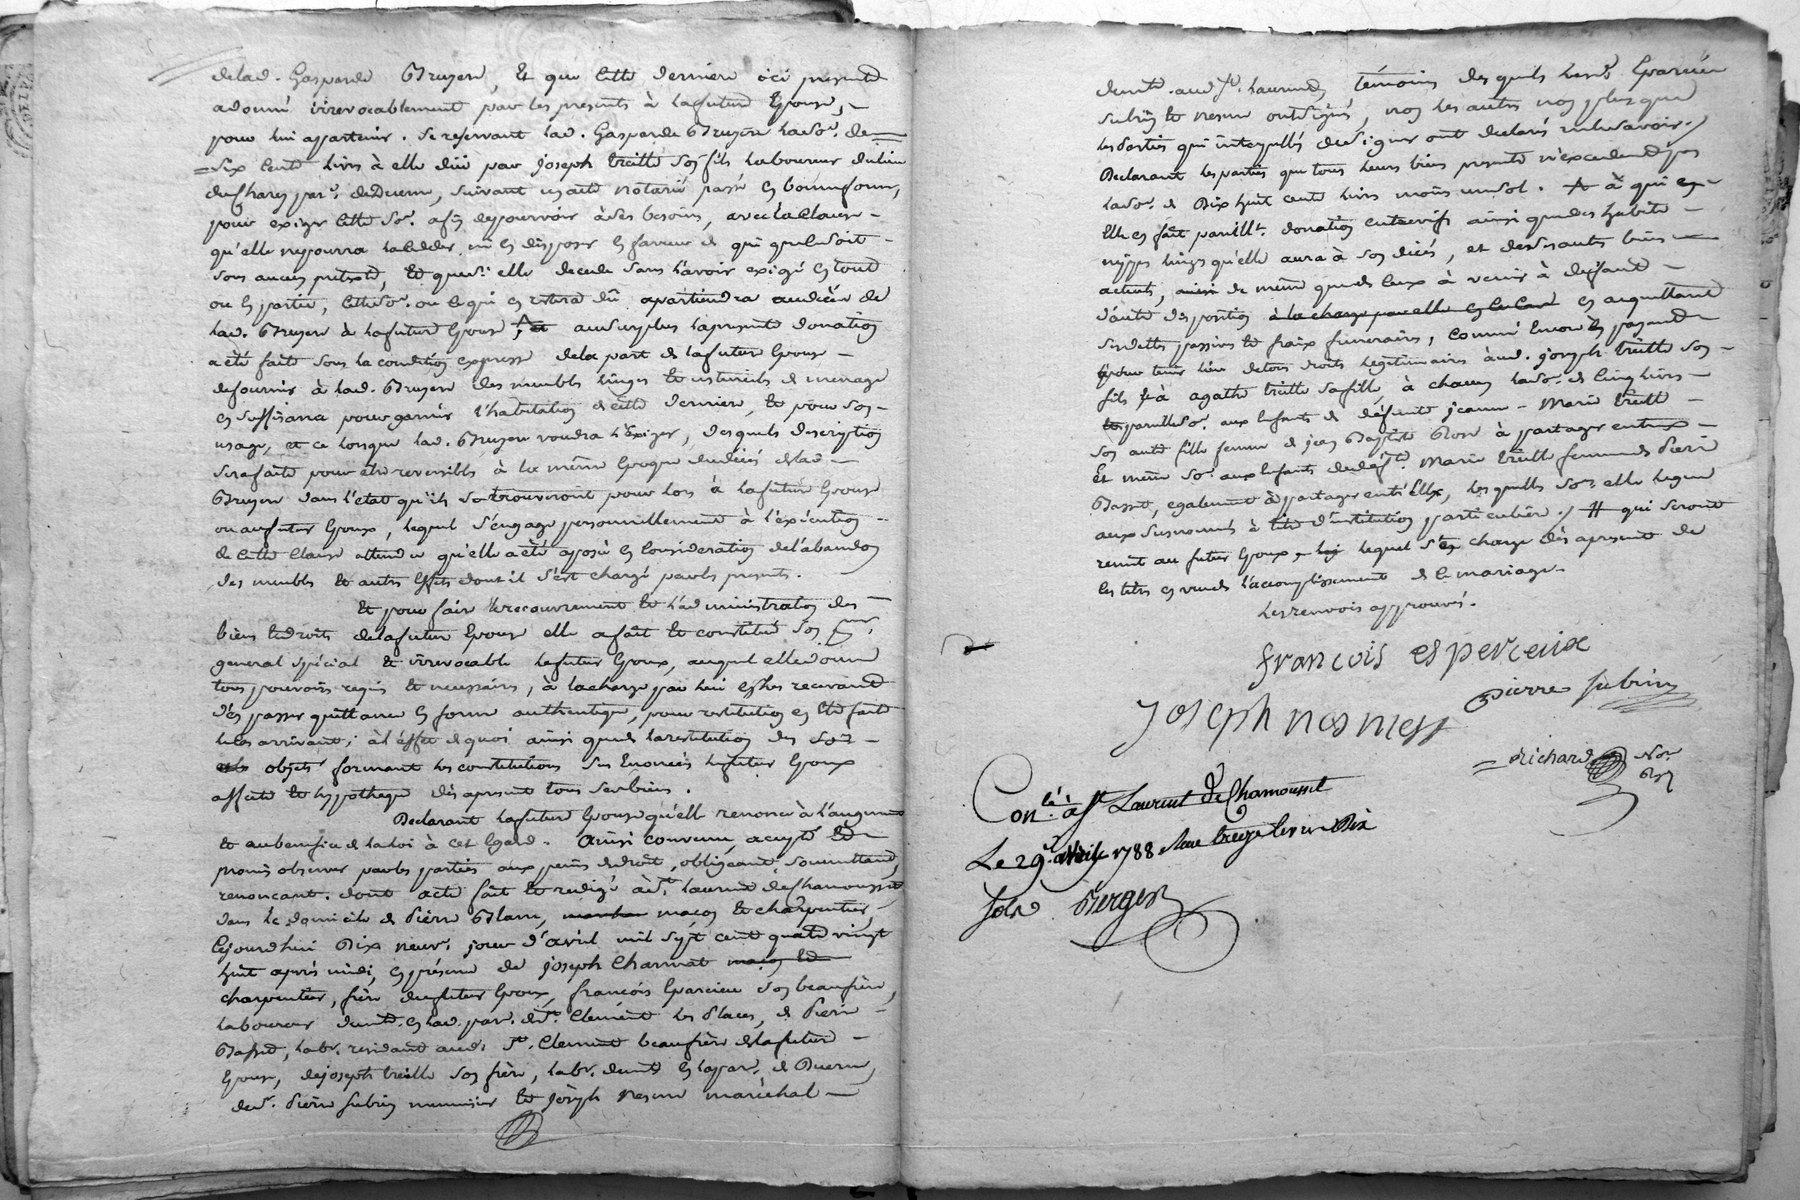 delad. Gasparde Bruyere, et que cette derniere ici presente
a donné irrevocablement par les presents à la future Epouse,
pour lui appartenir. Se reservant lad. Gasparde Bruyere la so.e de
six cents livres à elle düe par joseph Vieille son fils laboureur du lieu
par.e de Duerne, suivant un acte notarié passé en bonne forme,
pour exiger cette so.e afin de pourvoir à ses besoins, avec la clause
qu'elle ne pourra la ceder ni en disposer en faveur de qui que ce soit
sous aucun pretexte, et que si elle decede sans l'avoir exigé en tout
ou en partie, cette so.e ou ce qui en restera dû, apartiendra au décès de
lad. Bruyere à la future Epouse, au surplus la presente donation
a été faite sous la condition expresse de la part de la future Epouse
de fournir à lad. Bruyere des meubles linges et ustensils de menage
en suffisance pour garnir l'habitation de cette derniere, et pour son
usage, et ce lorsque lad. Bruyere voudra l'exiger, desquels description
sera faite pour être reversibles à la même Epoque du décés de lad.
Bruyere dans l'etat qu'ils se trouveront pour lors à la future Epouse
ou au futur Epoux, lequel s'engage personnellement à l'exécution
de cette clause attendu qu'elle a été aposée en consideration de l'abandon
des meubles et autres effets dont il s'est chargé par les presents.
Et pour faire le recouvrement et l'administration des
biens et droits de la future Epouse elle a fait et constitué son
general spécial et irrevocable le futur Epoux, auquel elle donne
tous pouvoirs requis et necessaires, à la charge par lui Es les recevant
d'en passer quittance en forme authentique, pour restitution en être faite
le cas arrivant; à l'effet de quoi ainsi que de la restitution des
objets formant les constitutions sus Enoncées le futur Epoux
affecte et hypotheque dès apresent tous ses biens.
Declarant la future Epouse qu'elle renonce à l'augment
et au benefice de la loi à cet Egard. Ainsi convenu, accepté et
promis observer par les parties aux peines de droit, obligeant, soumettant,
renonçant. dont acte fait et redigé à St. Laurent de Chamousset
dans le domicile de Pierre Blanc, maçon et charpentier,
cejourdhui dix neuv.e jour d'avril mil sept cent quatre vingt
huit après midi, en présence de joseph Charmat
charpentier, frère du futur Epoux, françois Eparcieu son beaufrère,
laboureur demt. en lad. par. de St. Clement les Places, de Pierre
Basset, lab.r residant aud. St. Clement beaufrère de la future
Epouse, de joseph Vieille son frère, lab.r demt. en la par. de Duerne,
de sr. Pierre Subrin menuisier et josph Nesme maréchal
demt. aud. St. Laurent, témoins desquels lesd. Eparcieu
Subrin et Nesme ont signés, non les autres non plus que
les Parties qui interpellés de signer ont declarés ne le savoir.
Declarant les parties que tous leurs biens presents n'excedent pas
la so.e de dix huit cents livres moins un sol. à qui
Elle en fait pareillt. donation entrevifs ainsi que des habits
nippes linges qu'elle aura à son décés, et de ses autres biens
actuels, de même que de ceux à venir à deffaut
d'autre disposition à la charge par elle en acquittant
ses dettes passives et fraix funeraires, comme Encore en payant
pour tenir lieu de tous droits legitimaires aud. joseph Vieille son
fils et à agathe Vieille sa fille, à chacun la so.e de cinq livres
pareille so.e aux Enfants de défunte jeanne Marie Vieille
son autre fille femme de jean Baptiste Rose à partager entreux
Et même so.e aux Enfants de def.te Marie Vieille femme de Pierre
Basset, egalement à partager entr'Elles, lesquelles so.es elle legue
aux susnommés à titre d'institution particuliere. qui seront
remis au futur Epoux, lequel s'en charge dès apresent de
les titres
l'accomplissement de ce mariage.
Les renvois approuvés.
francois esperceiux
pierre subrin
joseph nesmess
Richard No.re
Con.lé à St Laurent De Chamousset
Le 29.e avril 1788 Reçu treize livres Dix
sols Berger